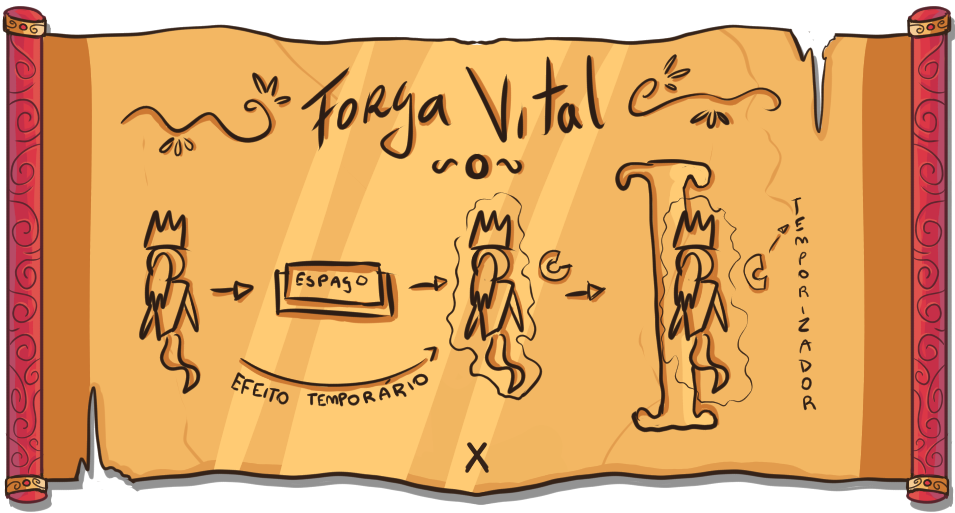 Força Vital
ESPAÇO
EFEITO TEMPORÁRIO
TEMPORIZADOR
X